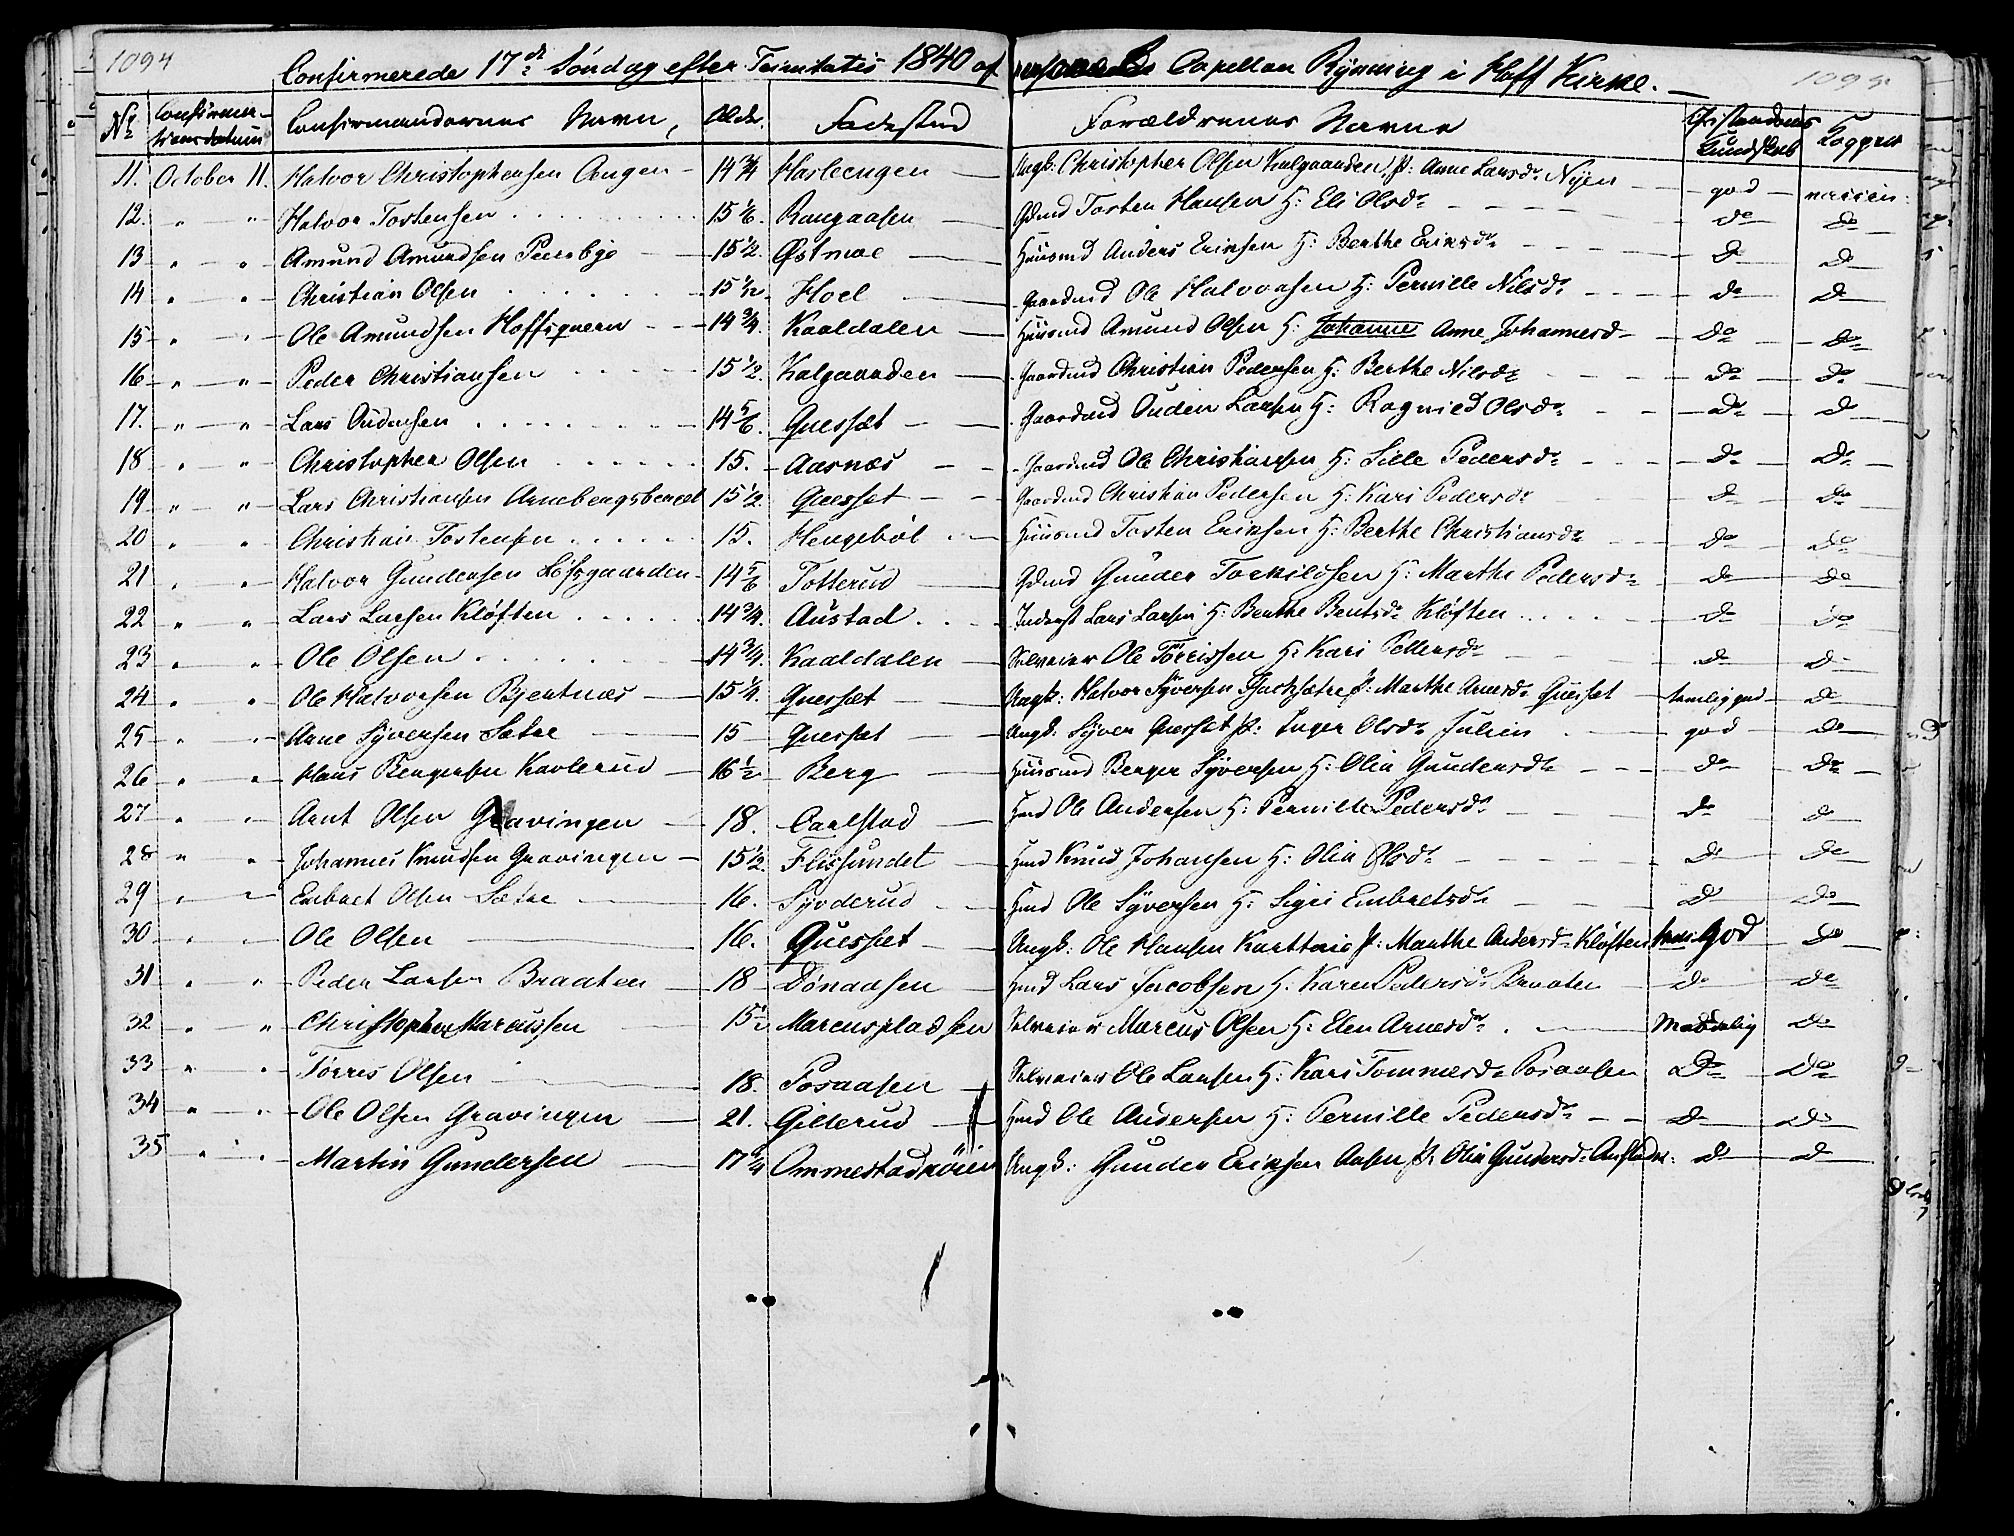 1094
1095
Confirmerede 17de Søndag efter Trinitatis 1840 af pers. Capellan Rÿnning i Hoff Kirke.
No Confirmationsdatum Confirmandernes Navn, Alder. Fødested Forældrenes Navne Christendoms Kundskab Koppret
11. October 11. Halvor Christophersen Ungen 14 3/4 Hasleengen Ungk: Christopher Olsen Kalgaarden, P: Anne Larsdr Nÿen god vaccin:
12. " " Halvor Tostensen 15 1/6. Raugaasen Gdmd Tosten Hansen H: Eli Olsdr do do
13 " " Amund Amundsen Peersbye 15 1/2. Østmoe Huusmd Anders Eriksen H: Berthe Eriksdr do do
14 " " Christian Olsen 15 1/12 Hoel Gaardmd Ole Halvorsen H: Pernille Nilsdr do do
15 " " Ole Amundsen Hoffsquern 14 3/4. Kaaldalen Huusmd Amund Olsen H: Johanne Anne Johannesd do do
16 " " Peder Christiansen 15 1/2. Kalgaarden Gaardmd Christian Pedersen H: Berthe Nilsdr do do
17. " " Lars Oudensen 14 5/6. Quesset Gaardmd Ouden Larsen H: Ragnied Olsdr do do
18 " " Christopher Olsen 15. Aasnæs Gaardmd Ole Christiansen H: Sille Pedersdr do do
19 " " Lars Christiansen Arnebergsberget 15 1/2. Quesset Gaardmd Christian Pedersen H: Kari Pedersdr do do
20 " " Christian Tostensen 15. Hengebøl Huusmd Tosten Eriksen H: Berthe Christiansdr do do
21 " " Halvor Gundersen Løfsgaarden 14 5/6 Potterud Gdmd Gunder Torkildsen H: Marthe Pedersdr do do
22 " " Lars Larsen Kløften 14 3/4. Austad Inderst Lars Larsen H: Berthe Berntsdr Kløften do do
23 " " Ole Olsen 14 3/4. Kaaldalen Selveier Ole Torrissen H: Kari Pedersdr do do
24 " " Ole Halvorsen Bjentnæs 15 1/4. Quesset Ungk: Halvor Sÿversen P: Marthe Arnesdr Quesset temlig god do
25 " " Arne Sÿversen Sætre 15 Quesset Ungk: Sÿver Quesset P: Inger Olsdr Julien god do
26 " " Hans Bergersen Kavlerud 16 1/2 Berg Huusmd Berger Sÿversen H: Olia Gundersdr do do
27 " " Arnt Olsen Gravingen 18. Carlstad Hmd Ole Andersen H: Pernille Pedersdr do do
28 " " Johannes Knudsen Gravingen 15 1/2. Flissundet Hmd Knud Johansen H: Olia Olsdr do do
29 " " Embret Olsen Sætre 16. Sÿvderud Hmd Ole Sÿversen H: Sigri Embretsdr do do
30 " " Ole Olsen 16. Quesset Ungk: Ole Hansen P: Marthe Andersdr Kløften God do
31 " " Peder Larsen Braaten 18 Dönaasen Hmd Lars Jacobsen H: Karen Pedersdr Braaten do do
32 " " Christopher Marcussen 15 1/2 Marcuspladsen Selveier Marcus Olsen H: Elen Arnesdr Maadelig do
33 " " Törres Olsen 18. Posaasen Selveier Ole Larsen H: Kari Tommesdr Posaasen do do
34 " " Ole Olsen Gravingen 21. Gillerud Hmd Ole Andersen H: Pernille Pedersdr do do
35 " " Martin Gundersen 17 3/4 Ommestadröien Ungk: Gunder Eriksen Aasen P: Olia Gundersdr do do